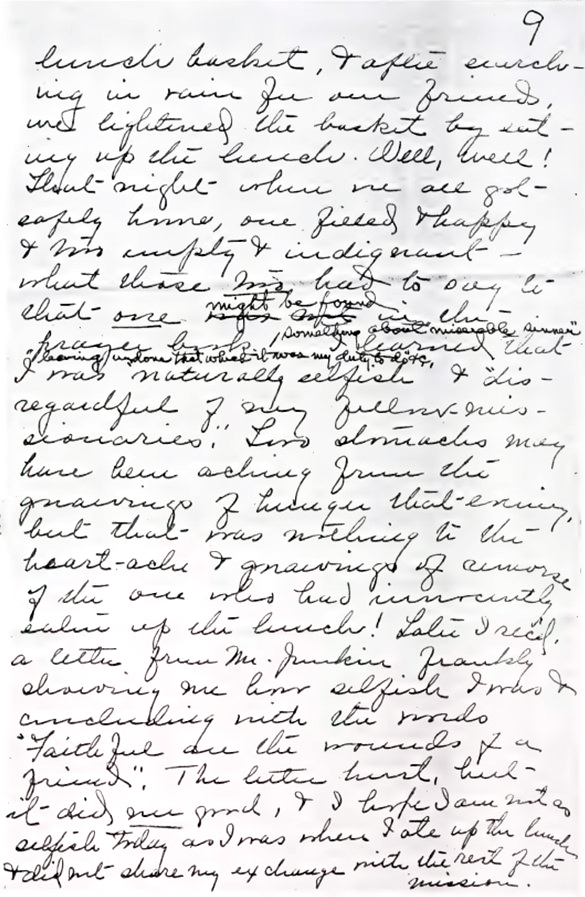 9
lunch basket, & after search-
ing in vain for our friends,
we lightened the basket by eat-
ing up the lunch. Well, well!
That night when we all got
safely home, one filled & happy
& two empty & indignant -
what those two had to say to
that one might be found in the
prayer book, "something about miserable sinner"
"leaving undone that which it was my duty to do" &c. I learned that
I was naturally selfish & "dis-
regardful of my fellow-mis-
sionaries." Two stomachs may
have been aching from the
gnawings of hunger that evening,
but that was nothing to the
heart-ache & gnawings of remorse
of the one who had innocently
eaten up the lunch! Later I rec'd.
a letter from Mr. Junkin frankly
showing me how selfish I was &
concluding with the words
"Faithful are the wounds of a
friend". The letter hurt, but
it did me good, & I hope I am not as
selfish today as I was when I ate up the lunch
& did not share my exchange with the rest of the
mission.